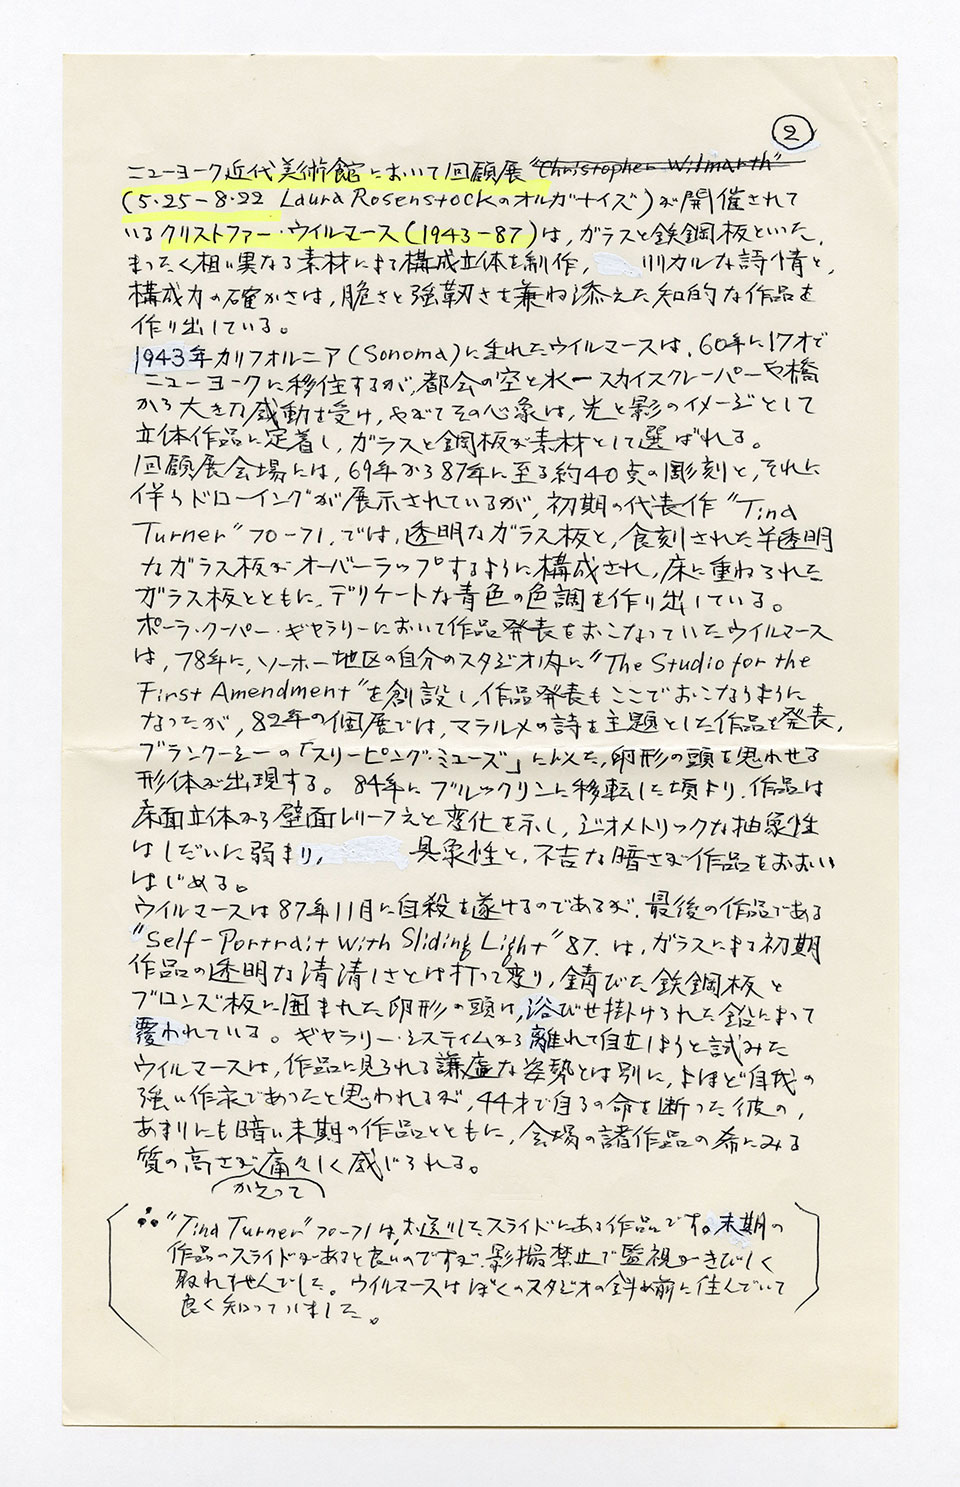 ②
ニューヨーク近代美術館において回顧展 "Christopher Wilmarth"
(5.25-8.22 Laura Rosenstockのオルガナイズ)が開催されて
いるクリストファー・ウイルマース(1943-87)は、ガラスと鉄鋼板といった、
まったく相い異なる素材による構成立体を制作, リリカルな詩情と,
構成力の確かさは, 脆さと強靱さを兼ね添えた知的な作品を
作り出している。
1943年カリフォルニア(Sonoma)に生れたウイルマースは、60年に17才で
ニューヨークに移住するが, 都会の空と水ースカイスクレーパーや橋
から大きな感動を受け, やがてその心象は, 光と影のイメージとして
立体作品に定着し, ガラスと鋼板が素材として選ばれる。
回顧展会場には, 69年から87年に至る約40点の彫刻と, それに
伴うドローイングが展示されているが, 初期の代表作"Tina
Turner" 70-71, では, 透明なガラス板と, 食刻された半透明
なガラス板がオーバーラップするように構成され, 床に重ねられた
ガラス板とともに, デリケートな青色の色調を作り出している。
ポーラ・クーパー・ギャラリーにおいて作品発表をおこなっていたウイルマース
は, 78年に, ソーホー地区の自分のスタジオ内に"The Studio for the
First Amendment"を創設し, 作品発表もここでおこなうように
なったが, 82年の個展では, マラルメの詩を主題とした作品を発表,
ブランクーシーの「スリーピング・ミューズ」に似た, 卵形の頭を思わせる
形体が出現する。84年にブルックリンに移転した頃より, 作品は
床面立体から壁面レリーフえと変化を示し, ジオメトリックな抽象性
はしだいに弱まり, 具象性と, 不吉な暗さが作品をおおい
はじめる。
ウイルマースは87年11月に自殺を遂げるのであるが, 最後の作品である
"Self-Portrait with Sliding Light" 87. は, ガラスによる初期
作品の透明な清清しさとは打って変り, 錆びた鉄鋼板と
ブロンズ板に囲まれた卵形の頭は, 浴びせ掛けられた鉛によって
覆われている。ギャラリー・システィムから離れて自立しようと試みた
ウイルマースは, 作品に見られる謙虚な姿勢とは別に, よほど自我の
強い作家であったと思われるが, 44才で自らの命を断った彼の,
あまりにも暗い末期の作品とともに, 会場の諸作品の希にみる
質の高さが痛々しく感じられる。
かえって
∴ "Tina Turner" 70-71は, お送りしたスライドにある作品です。末期の
作品のスライドがあると良いのですが, 影撮禁止で監視がきびしく
取れませんでした。ウイルマースはぼくのスタジオの斜め前に住んでいて
良く知っていました。